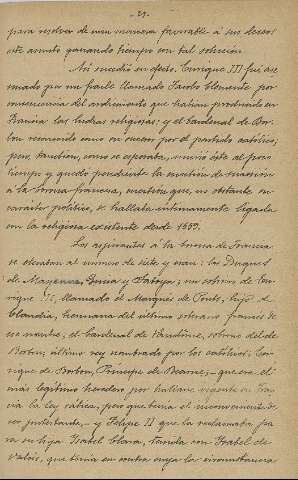 - 21 -
para resolver de una manera favorable á sus deseos
este asunto ganando tiempo con tal solución.
Así sucedió en efecto. Enrique III fué ase-
sinado por un fraile llamado Jacobo Clemente por
consecuencia del ardimiento que habían producido en
Francia las luchas religiosas; y el Cardenal de Bor-
bón reconocido como su sucesor por el partido católico;
pero también, como se esperaba, murió éste al poco
tiempo y quedó pendiente la cuestión de sucesión
á la corona francesa, cuestión que, no obstante su
carácter político, se hallaba íntimamente ligada
con la religiosa existente desde 1559.
Los aspirantes á la corona de Francia
se elevaban al número de siete y eran: los Duques
de Mayenne, Lorena y Saboya; un sobrino de En-
rique III, llamado el Marqués de Ponts, hijo de
Claudia, hermana del último soberano francés de
su nombre; el Cardenal de Vandôme, sobrino del de
Borbón, último rey nombrado por los católicos; En-
rique de Borbón, Príncipe de Bearne, que era el
más legítimo heredero por hallarse vigente en Fran-
cia la ley sálica, pero que tenía el inconveniente de
ser protestante, y Felipe II que la reclamaba pa-
ra su hija Isabel Clara, tenida con Isabel de
Valois, que tenía en contra suya la circunstancia